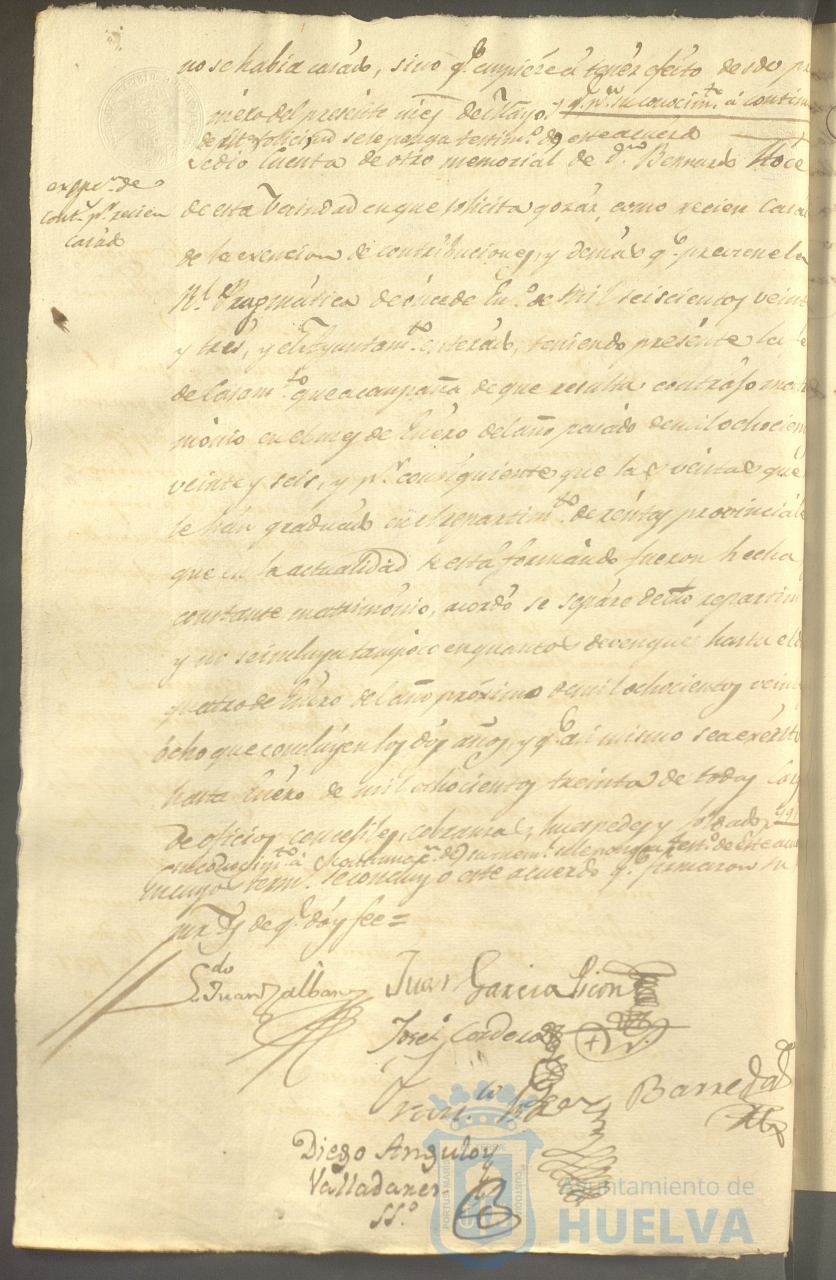 no se había casado, sino q.e empiece á tener efecto desde el pri
mero del presente mes de Mayo, y q.e p.a su conocim.to á contin
de dha solicitud se le ponga testim.o de este acuerdo
exp.te de
cont.s p.r recien
casado
Se dio cuenta de otro memorial de D.n Bernardo
de esta Vecindad en que solicita gozar, como recien Casa
de la exencion de contribuciones, y demás q.e previene la
R.l Pragmática de once de En.o de mil seiscientos veint
y tres, y el Ayuntam.to enterado, teniendo presente la fé
de Casam.to que acompaña de que resulta contrajo matri
mónio en el mes de Enéro del año pasado de mil ochocien
veinte y seis, y p.r consiguiente que las ventas que
se han graduado en el repartim.to de réntas provinciále
que en la actualidad se está formando fueron hecha
constante matrimónio, acordó se sepáre de dho repartim
y no se incluya tampoco en quantos devengue hasta el dia
quatro de Enéro del año próximo de mil ochocientos veint
ócho que concluyen los dos años, y q.e asimismo sea exênto
hasta Enéro de mil ochocientos treinta de todas cargas
de oficios concegiles, cobranzas, huespedes, y soldados, y q.e
su conocim.to á continuaz.n de su mem.l se le ponga test.o de este acu
en cuyos term.s se concluyó este acuerdo q.e firmaron su
mr.ds de q.e doy fee =
L.do Juan Zalbans
Juan Garcia Gion
José Cordero
Fran.co
Barreda
Diego Angulo y
Valladares
SS.o
Ayuntamiento de
HUELVA